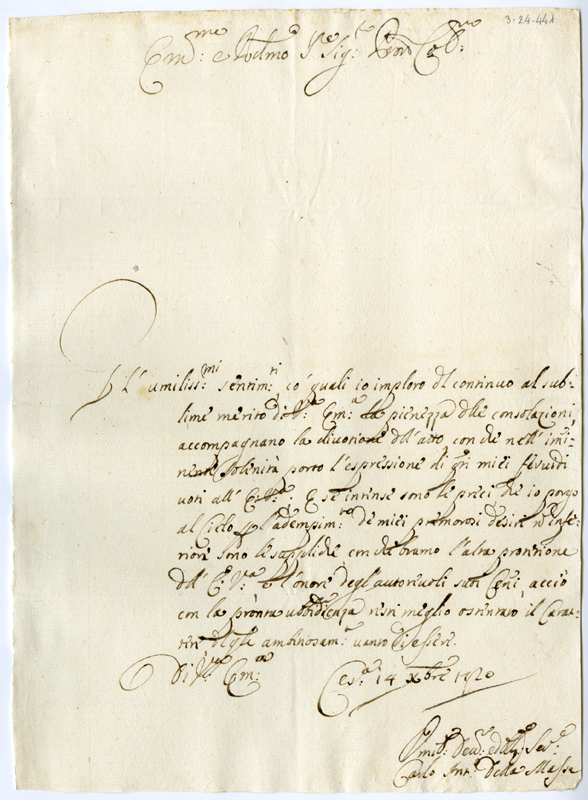 3-24-441
Em:mo e Rev.mo Sig:re Pron Col:mo
L'umiliss:mi sentim:ti co' quali io imploro dl continuo al sub-
lime merito di V:ra Em:a la pienezza dlle consolazioni,
accompagnano la divozione dll'atto con che nell'immi-
nente Solenità porto l'espressione di qti miei fervidi
voti all' E.V. E se intense sono le preci che io porgo
al Cielo p l'adempim:to de miei premorosi desiri, n infe-
riori sono le suppliche con che bramo l'alta protezione
dll' E. V.a e l'onore degl'autorevoli suoi Ceni, acciò
con la pronta ubbidienza resti meglio ostentato il Carat-
tere, di che ambiziosam:e vanto d'essere.
Di V:ra Em:za
Ces:a 14 Xbre 1720
Umil: Dev: ed Obb: Ser:e
Carlo Ant: Della Massa